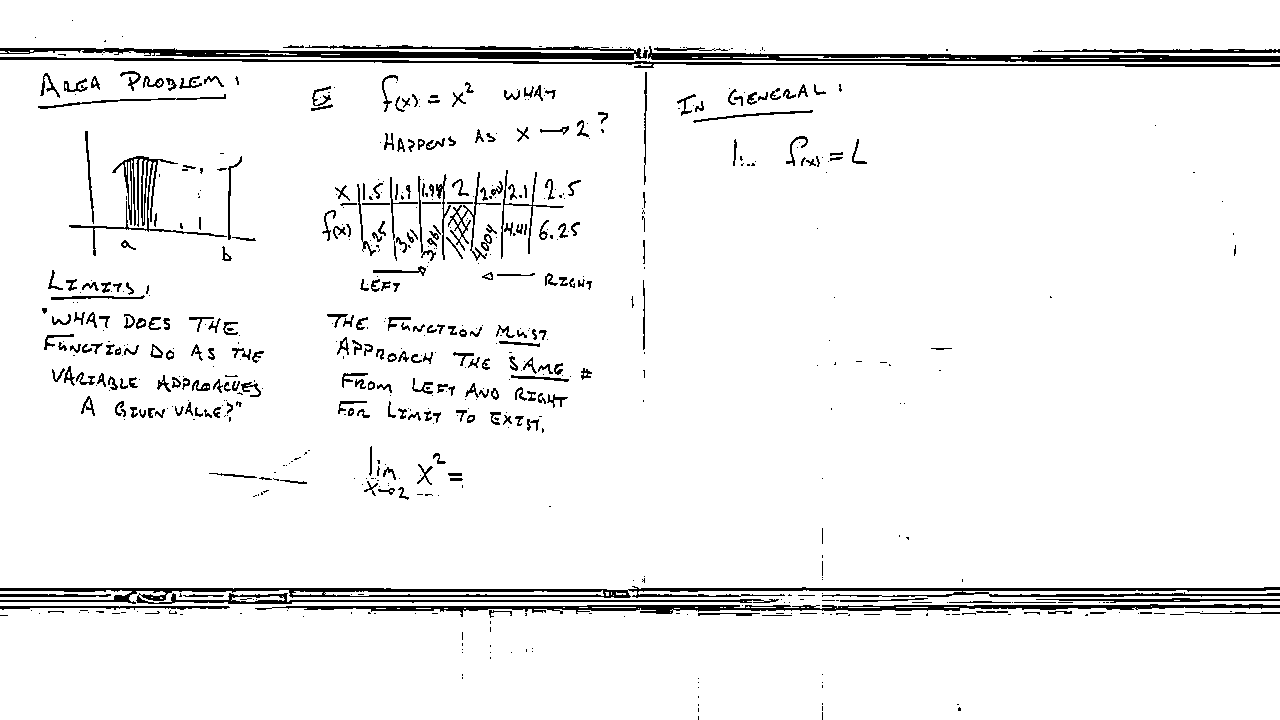 AREA PROBLEM:
a
b
LIMITS:
"WHAT DOES THE
FUNCTION DO AS THE
VARIABLE APPROACHES
A GIVEN VALUE?"
EX f(x) = x² WHAT
HAPPENS AS X → 2?
X 1.5 1.9 2 2.1 2.5
f(x) 2.25 3.61 3.961 4.004 4.41 6.25
LEFT → ← RIGHT
THE FUNCTION MUST
APPROACH THE SAME #
FROM LEFT AND RIGHT
FOR LIMIT TO EXIST.
lim X² =
X→2
IN GENERAL:
f(x) = L